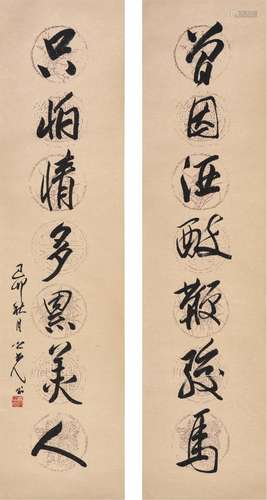 曾因酒醉鞭駿馬
只怕情多累美人
己卯秋月